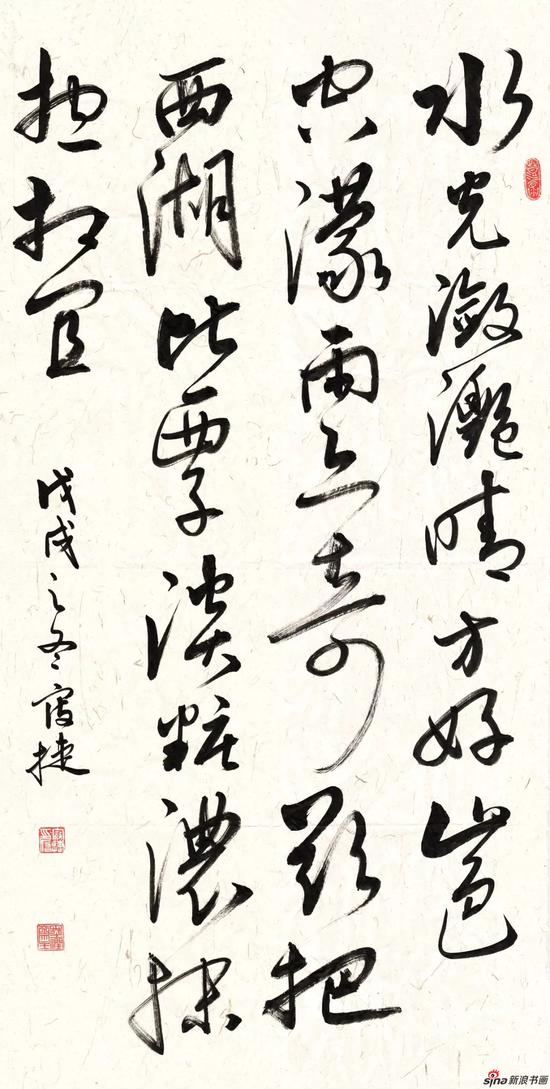 水光瀲灧晴方好山色
空濛雨亦奇欲把
西湖比西子淡粧濃抹
揔相宜
戊戌之冬 捷
sina新浪书画